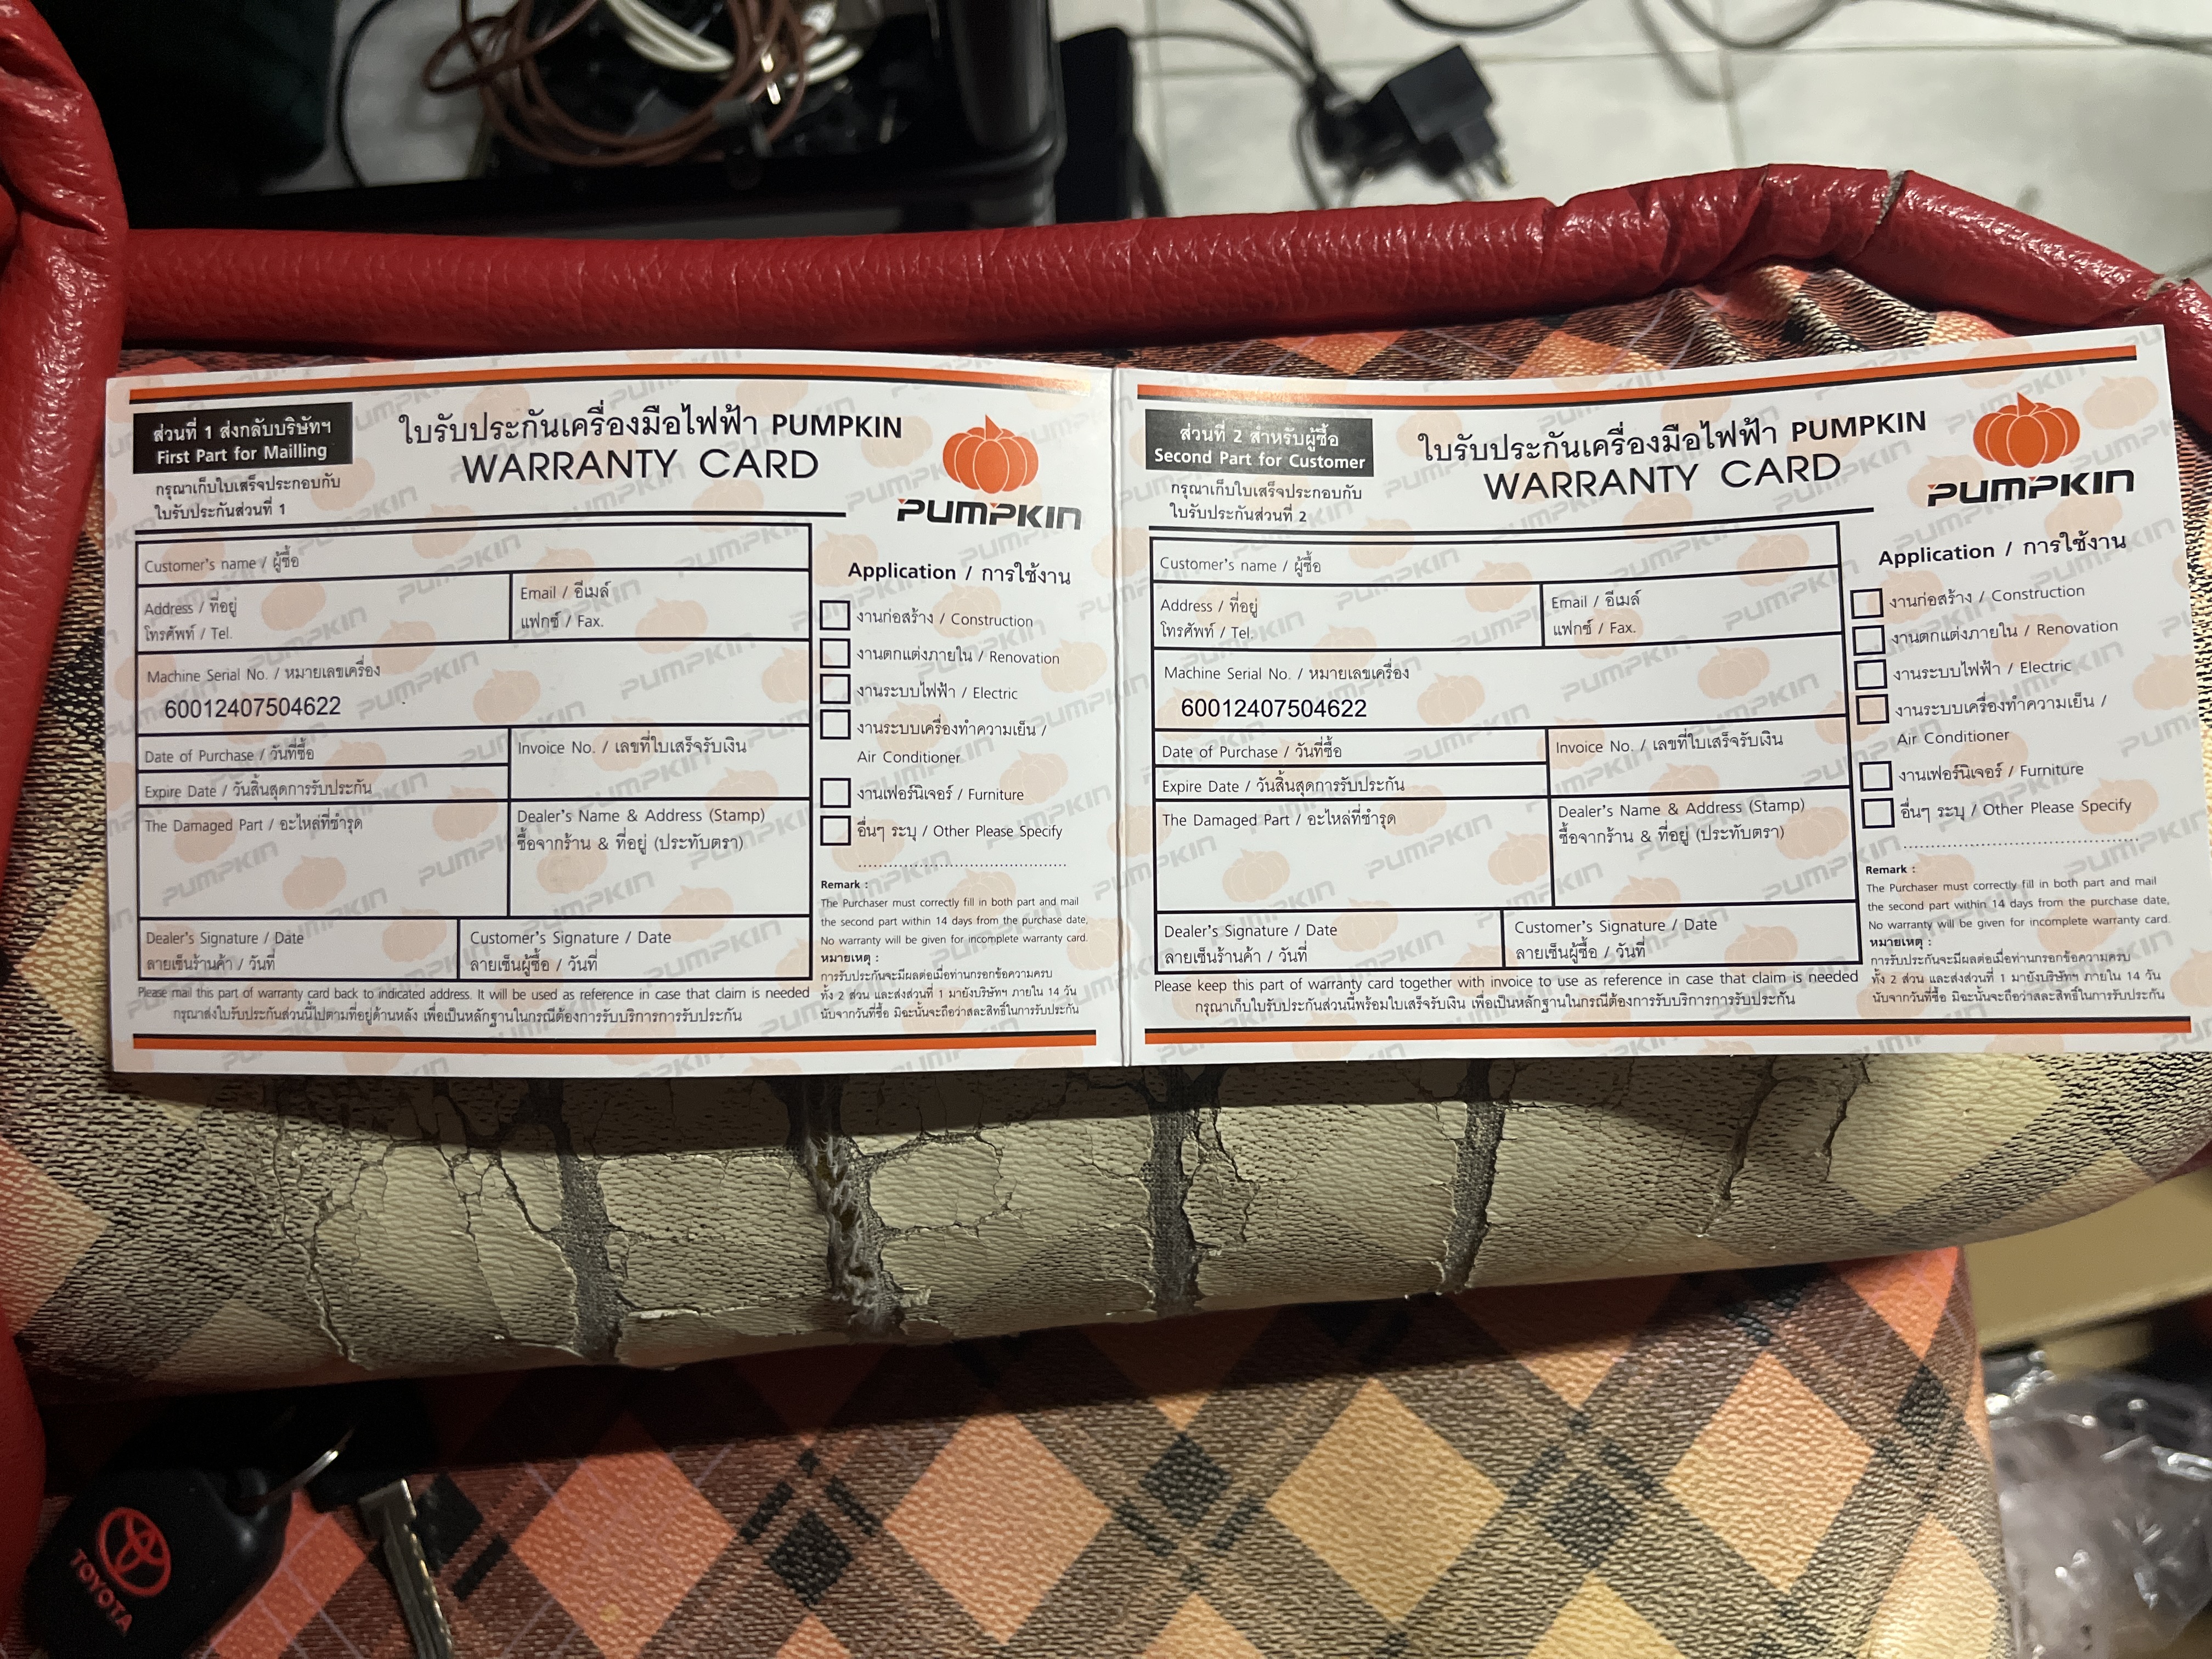 ส่วนที่ 1 ส่งกลับบริษัทฯ
First Part for Mailling
กรุณาเก็บใบเสร็จประกอบกับ
ใบรับประกันส่วนที่ 1
ใบรับประกันเครื่องมือไฟฟ้า PUMPKIN
WARRANTY CARD
PUMPKIN
Customer's name / ผู้ซื้อ
Address / ที่อยู่
โทรศัพท์ / Tel.
Email / อีเมล์
แฟกซ์ / Fax.
Machine Serial No. / หมายเลขเครื่อง
60012407504622
Date of Purchase / วันที่ซื้อ
Expire Date / วันสิ้นสุดการรับประกัน
Invoice No. / เลขที่ใบเสร็จรับเงิน
The Damaged Part / อะไหล่ที่ชำรุด
Dealer's Name & Address (Stamp)
ซื้อจากร้าน & ที่อยู่ (ประทับตรา)
Dealer's Signature / Date
ลายเซ็นร้านค้า / วันที่
Customer's Signature / Date
ลายเซ็นผู้ซื้อ / วันที่
Please mail this part of warranty card back to indicated address. It will be used as reference in case that claim is needed
กรุณาส่งใบรับประกันส่วนนี้ไปตามที่อยู่ด้านหลัง เพื่อเป็นหลักฐานในกรณีต้องการรับบริการการรับประกัน
Application / การใช้งาน
งานก่อสร้าง / Construction
งานตกแต่งภายใน / Renovation
งานระบบไฟฟ้า / Electric
งานระบบเครื่องทำความเย็น /
Air Conditioner
งานเฟอร์นิเจอร์ / Furniture
อื่นๆ ระบุ / Other Please Specify
Remark :
The Purchaser must correctly fill in both part and mail
the second part within 14 days from the purchase date,
No warranty will be given for incomplete warranty card.
หมายเหตุ :
การรับประกันจะมีผลต่อเมื่อท่านกรอกข้อความครบ
ทั้ง 2 ส่วน และส่งส่วนที่ 1 มายังบริษัทฯ ภายใน 14 วัน
นับจากวันที่ซื้อ มิฉะนั้นจะถือว่าสละสิทธิ์ในการรับประกัน
ส่วนที่ 2 สำหรับผู้ซื้อ
Second Part for Customer
กรุณาเก็บใบเสร็จประกอบกับ
ใบรับประกันส่วนที่ 2
ใบรับประกันเครื่องมือไฟฟ้า PUMPKIN
WARRANTY CARD
PUMPKIN
Customer's name / ผู้ซื้อ
Address / ที่อยู่
โทรศัพท์ / Tel.
Email / อีเมล์
แฟกซ์ / Fax.
Machine Serial No. / หมายเลขเครื่อง
60012407504622
Date of Purchase / วันที่ซื้อ
Expire Date / วันสิ้นสุดการรับประกัน
Invoice No. / เลขที่ใบเสร็จรับเงิน
The Damaged Part / อะไหล่ที่ชำรุด
Dealer's Name & Address (Stamp)
ซื้อจากร้าน & ที่อยู่ (ประทับตรา)
Dealer's Signature / Date
ลายเซ็นร้านค้า / วันที่
Customer's Signature / Date
ลายเซ็นผู้ซื้อ / วันที่
Please keep this part of warranty card together with invoice to use as reference in case that claim is needed
กรุณาเก็บใบรับประกันส่วนนี้พร้อมใบเสร็จรับเงิน เพื่อเป็นหลักฐานในกรณีต้องการรับบริการการรับประกัน
Application / การใช้งาน
งานก่อสร้าง / Construction
งานตกแต่งภายใน / Renovation
งานระบบไฟฟ้า / Electric
งานระบบเครื่องทำความเย็น /
Air Conditioner
งานเฟอร์นิเจอร์ / Furniture
อื่นๆ ระบุ / Other Please Specify
Remark :
The Purchaser must correctly fill in both part and mail
the second part within 14 days from the purchase date,
No warranty will be given for incomplete warranty card.
หมายเหตุ :
การรับประกันจะมีผลต่อเมื่อท่านกรอกข้อความครบ
ทั้ง 2 ส่วน และส่งส่วนที่ 1 มายังบริษัทฯ ภายใน 14 วัน
นับจากวันที่ซื้อ มิฉะนั้นจะถือว่าสละสิทธิ์ในการรับประกัน
TOYOTA